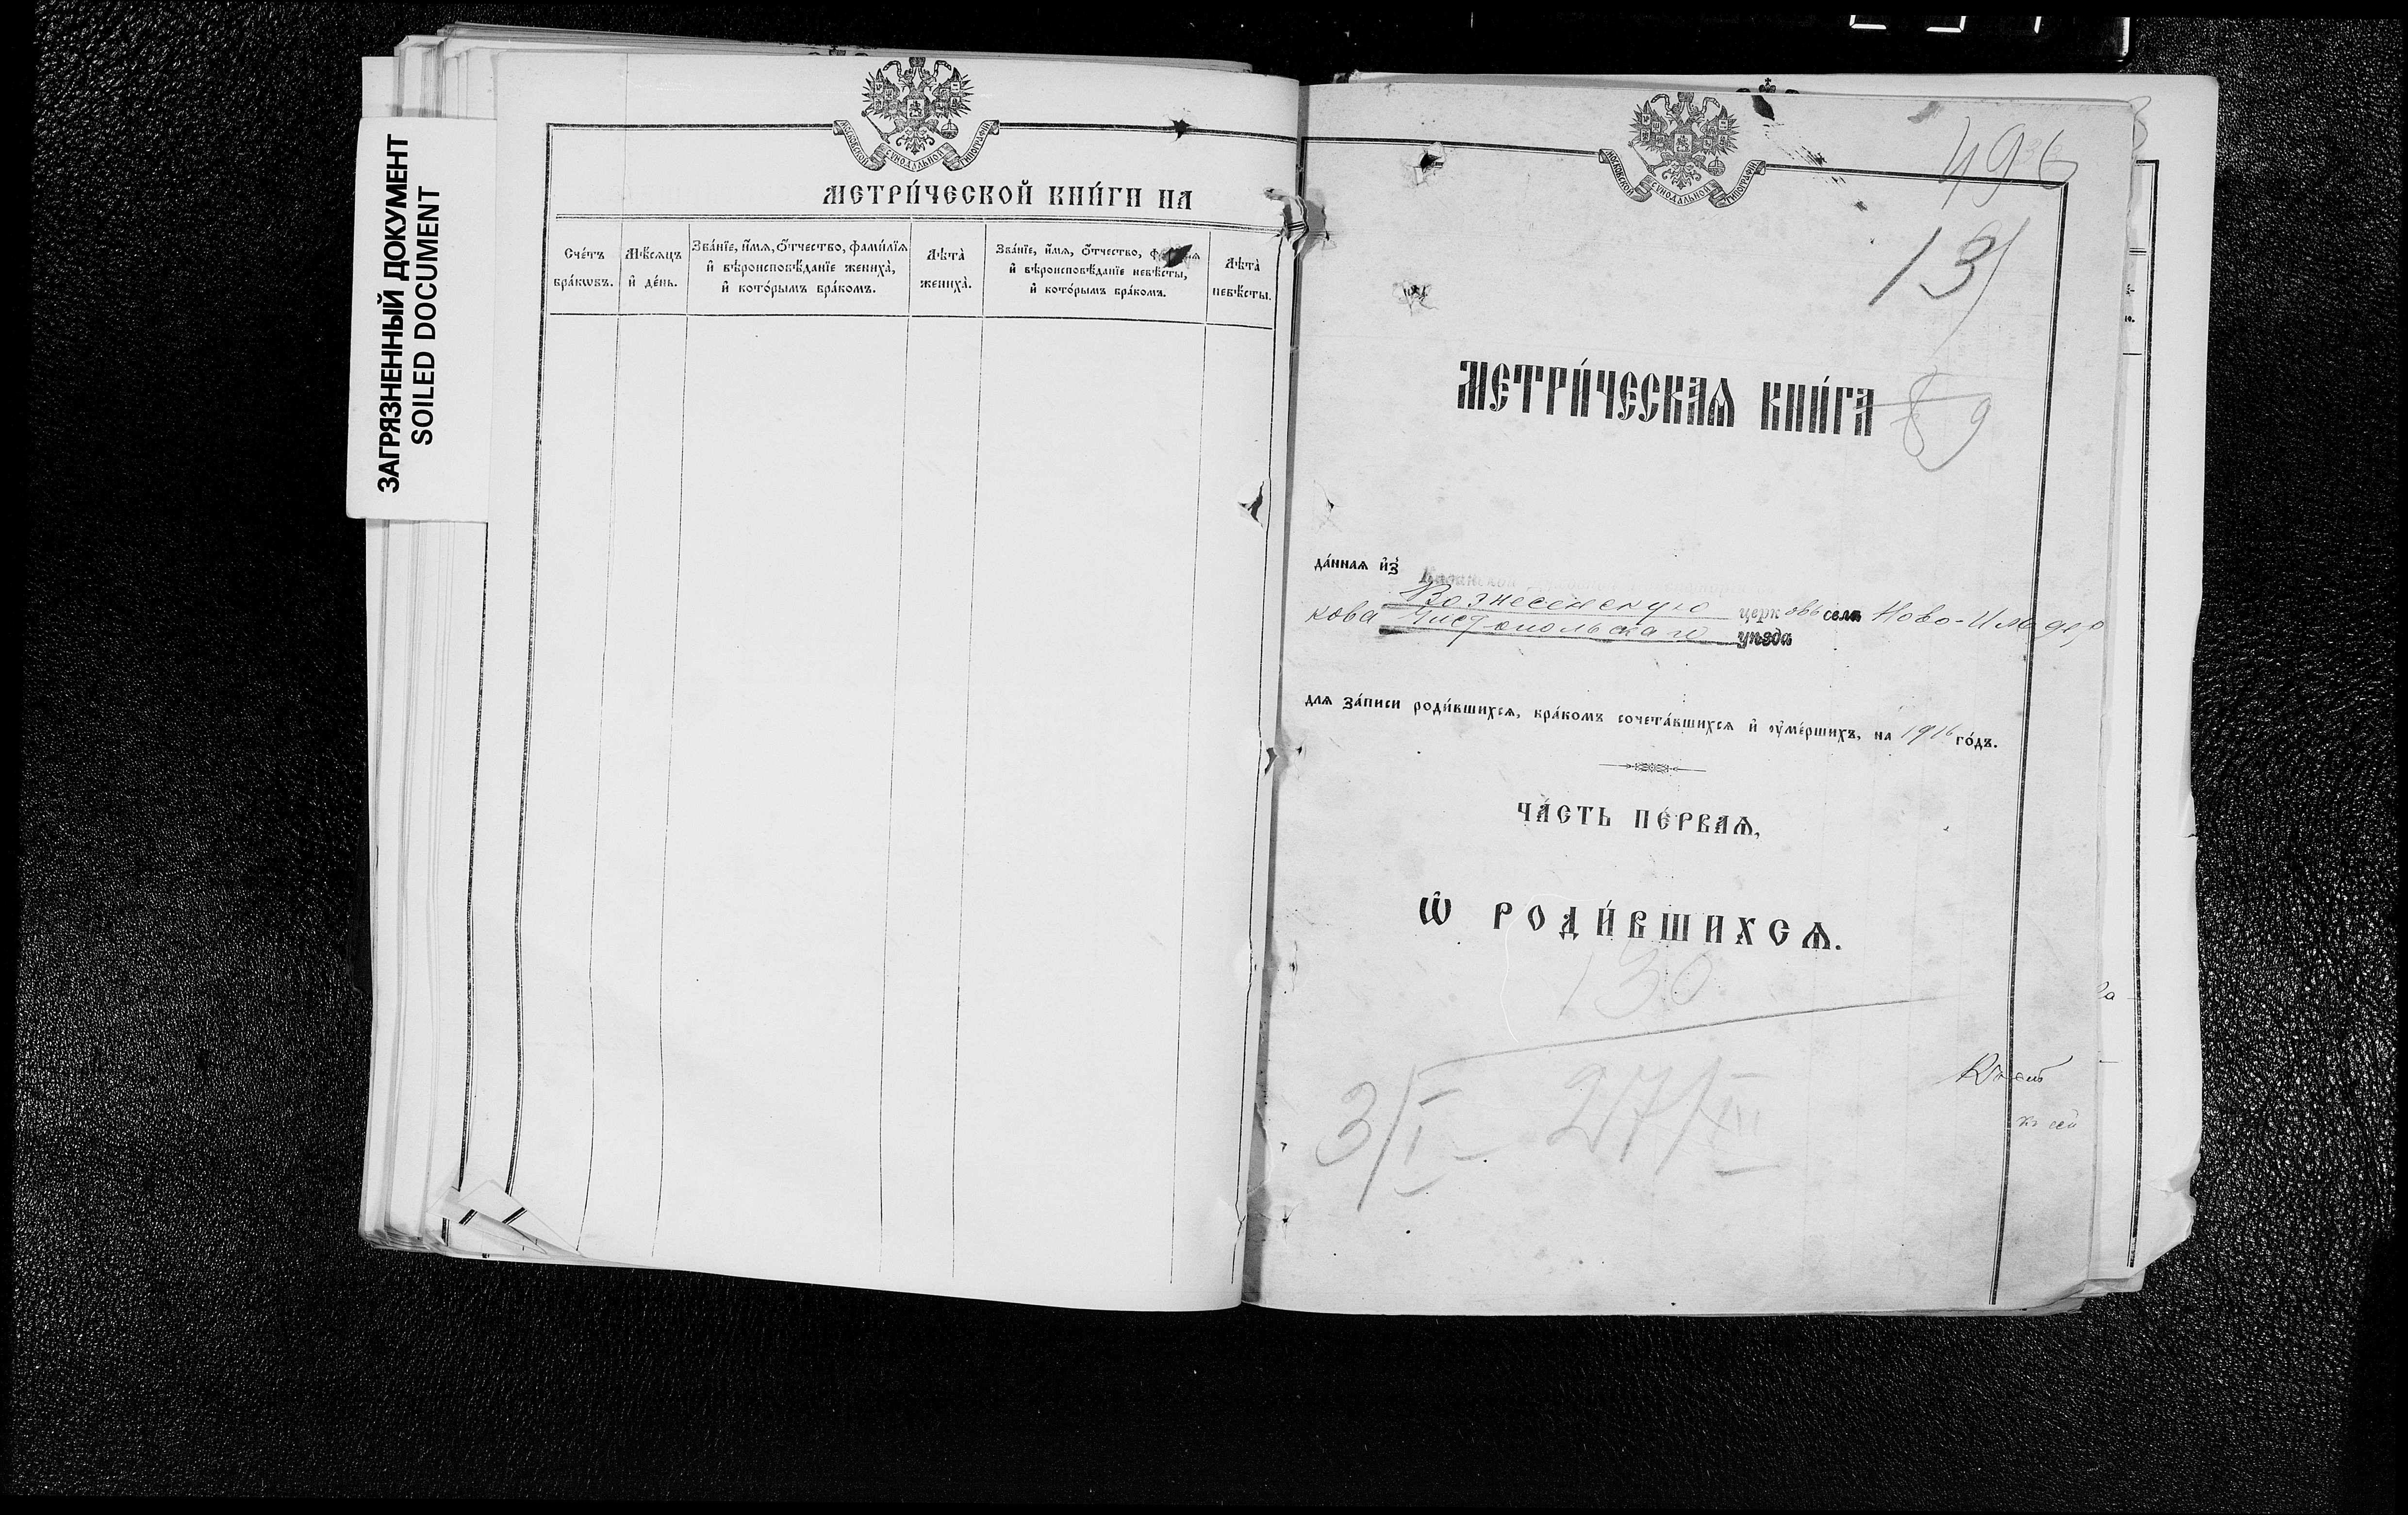 ЗАГРЯЗНЕННЫЙ ДОКУМЕНТ
SOILED DOCUMENT
МОСКОВСКОЙ СѴНОДАЛЬНОЙ ТИПОГРАФІИ
МЕТРИ́ЧЕСКОЙ КНИ́ГИ НА
Сче́тъ бра́кѡвъ.
Мѣ́сѧцъ и҆ де́нь.
Зва́нїе, и҆́мѧ, ѻ҆́тчество, фами́лїѧ
и҆ вѣроисповѣ́данїе жениха̀,
и҆ кото́рымъ бра́комъ.
Лѣта̀ жениха̀.
Зва́нїе, и҆́мѧ, ѻ҆́тчество,
и҆ вѣроисповѣ́данїе невѣ́сты,
и҆ кото́рымъ бра́комъ.
Лѣта̀ невѣ́сты.
МОСКОВСКОЙ СѴНОДАЛЬНОЙ ТИПОГРАФІИ
496
13
МЕТРИ́ЧЕСКАѦ КНИ́ГА
89
да́ннаѧ и҆з̾ Казанской
Вознесенскую церковь села Ново-Ильдеря
кова Чистопольскаго уѣзда
длѧ за́писи роди́вшихсѧ, бра́комъ сочета́вшихсѧ и҆ ᲂу҆ме́ршихъ, на 1916 го́дъ.
ЧА́СТЬ ПЕ́РВАѦ,
Ѡ҆ РОДИ́ВШИХСѦ.
130
3/I - 27/XII
къ сей